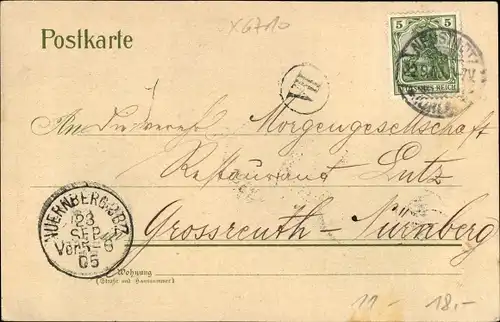 X6710
Postkarte
5 5
DEUTSCHES REICH
VI
An Morgengesellschaft
Restaurant Lutz
Grossreuth-Nürnberg
NUERNBERG
23
SEP
Vor. 5-6
05
Wohnung
(Straße und Hausnummer)
11- 18.-